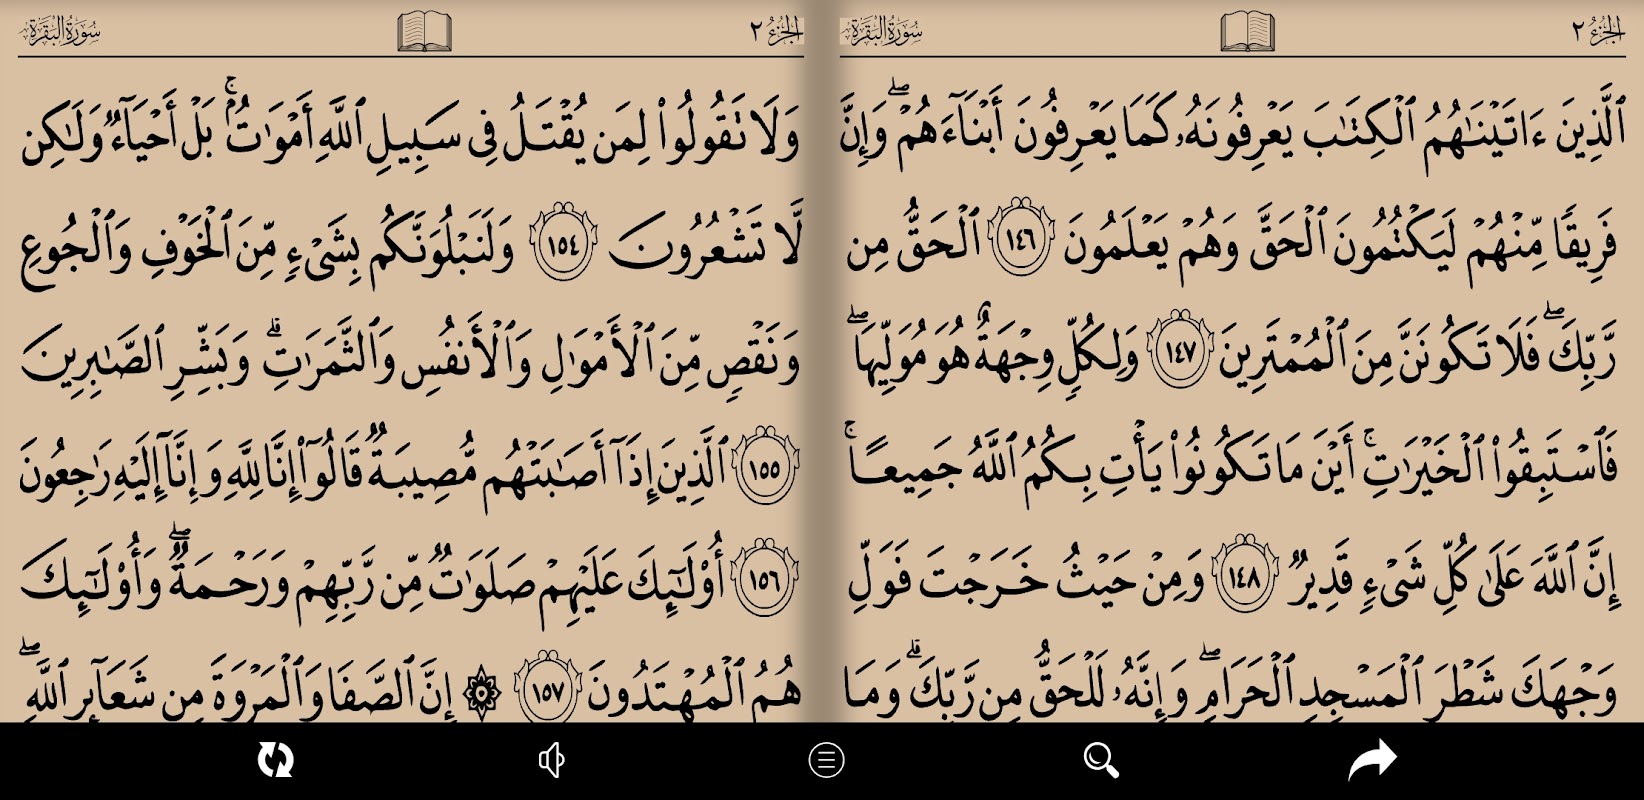 الجزء ٢
سورة البقرة
ٱلَّذِينَ ءَاتَيۡنَٰهُمُ ٱلۡكِتَٰبَ يَعۡرِفُونَهُۥ كَمَا يَعۡرِفُونَ أَبۡنَآءَهُمۡۖ وَإِنَّ
فَرِيقٗا مِّنۡهُمۡ لَيَكۡتُمُونَ ٱلۡحَقَّ وَهُمۡ يَعۡلَمُونَ ١٤٦ ٱلۡحَقُّ مِن
رَّبِّكَۖ فَلَا تَكُونَنَّ مِنَ ٱلۡمُمۡتَرِينَ ١٤٧ وَلِكُلّٖ وِجۡهَةٌ هُوَ مُوَلِّيهَاۖ
فَٱسۡتَبِقُواْ ٱلۡخَيۡرَٰتِۚ أَيۡنَ مَا تَكُونُواْ يَأۡتِ بِكُمُ ٱللَّهُ جَمِيعًاۚ
إِنَّ ٱللَّهَ عَلَىٰ كُلِّ شَيۡءٖ قَدِيرٞ ١٤٨ وَمِنۡ حَيۡثُ خَرَجۡتَ فَوَلِّ
وَجۡهَكَ شَطۡرَ ٱلۡمَسۡجِدِ ٱلۡحَرَامِۖ وَإِنَّهُۥ لَلۡحَقُّ مِن رَّبِّكَۗ وَمَا
الجزء ٢
سورة البقرة
وَلَا تَقُولُواْ لِمَن يُقۡتَلُ فِي سَبِيلِ ٱللَّهِ أَمۡوَٰتُۢۚ بَلۡ أَحۡيَآءٞ وَلَٰكِن
لَّا تَشۡعُرُونَ ١٥٤ وَلَنَبۡلُوَنَّكُم بِشَيۡءٖ مِّنَ ٱلۡخَوۡفِ وَٱلۡجُوعِ
وَنَقۡصٖ مِّنَ ٱلۡأَمۡوَٰلِ وَٱلۡأَنفُسِ وَٱلثَّمَرَٰتِۗ وَبَشِّرِ ٱلصَّٰبِرِينَ
١٥٥ ٱلَّذِينَ إِذَآ أَصَٰبَتۡهُم مُّصِيبَةٞ قَالُوٓاْ إِنَّا لِلَّهِ وَإِنَّآ إِلَيۡهِ رَٰجِعُونَ
١٥٦ أُوْلَٰٓئِكَ عَلَيۡهِمۡ صَلَوَٰتٞ مِّن رَّبِّهِمۡ وَرَحۡمَةٞۖ وَأُوْلَٰٓئِكَ
هُمُ ٱلۡمُهۡتَدُونَ ١٥٧ ۞ إِنَّ ٱلصَّفَا وَٱلۡمَرۡوَةَ مِن شَعَآئِرِ ٱللَّهِۖ